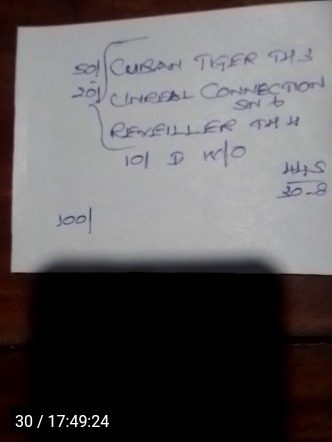 50/ CUBAN TIGER TH 3
20/ UNREAL CONNECTION
SN 6
REVEILLER TH 4
10/ D W/O
445
30-8
100/
30 / 17:49:24